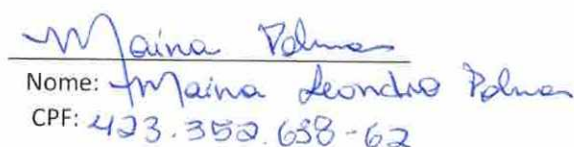 Maina Palmas
Nome: Maina Leondro Palmas
CPF: 423.352.658-62